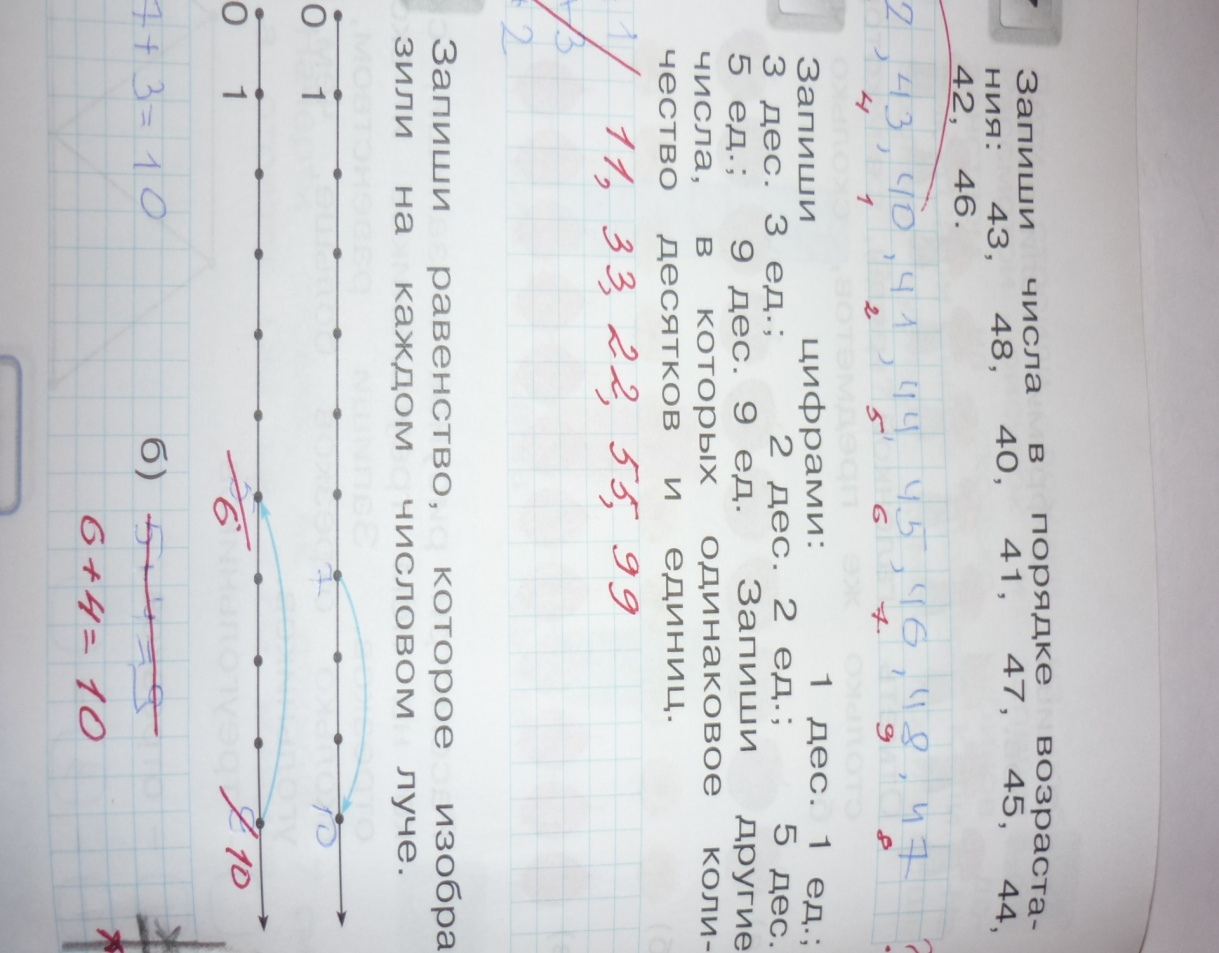 Запиши числа в порядке возраста-
ния: 43, 48, 40, 41, 47, 45, 44,
42, 46.
2, 43, 40, 41, 44 45, 46, 48, 47
4 1 2 5 6 7 9 8
Запиши цифрами: 1 дес. 1 ед.;
3 дес. 3 ед.; 2 дес. 2 ед.; 5 дес.
5 ед.; 9 дес. 9 ед. Запиши другие
числа, в которых одинаковое коли-
чество десятков и единиц.
11, 33, 22, 55, 99
Запиши равенство, которое изобра
зили на каждом числовом луче.
0 1 7 10
0 1 6 10
7+3=10 б)
6+4=10